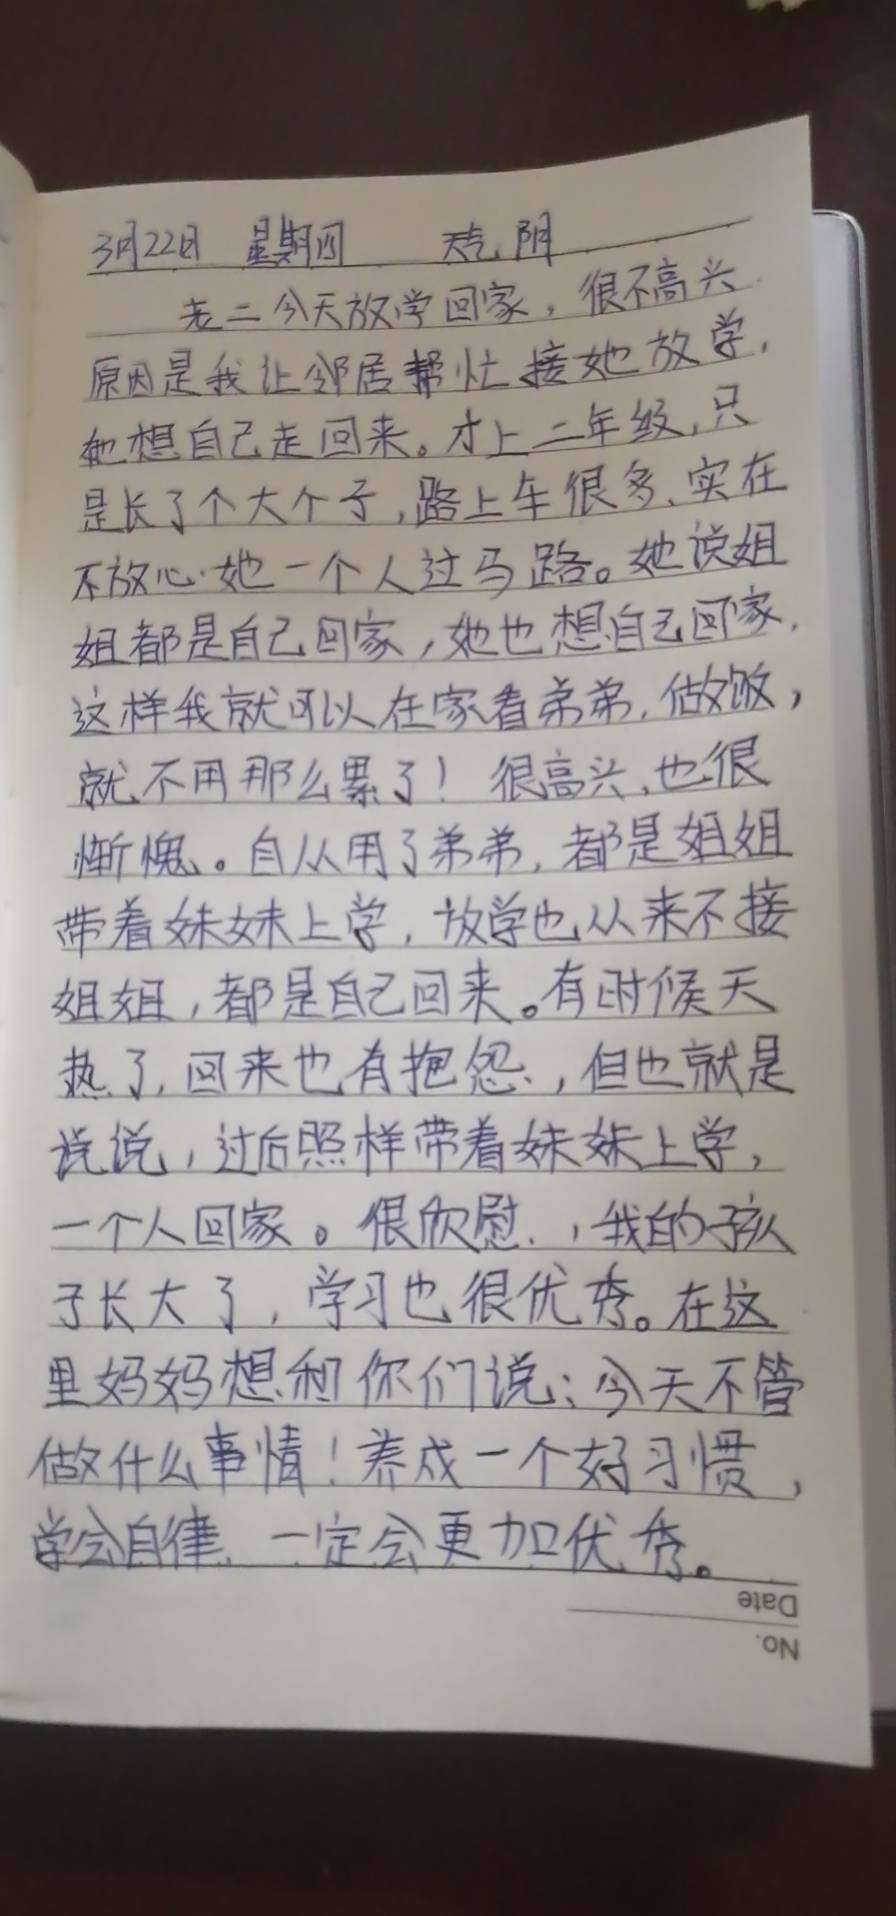 3月22日 星期四 天气 阴
老二今天放学回家，很不高兴
原因是我让邻居帮忙接她放学，
她想自己走回来。才上二年级，只
是长了个大个子，路上车很多、实在
不放心她一个人过马路。她说姐
姐都是自己回家，她也想自己回家，
这样我就可以在家看弟弟，做饭，
就不用那么累了！很高兴，也很
惭愧。自从用了弟弟，都是姐姐
带着妹妹上学，放学也从来不接
姐姐，都是自己回来。有时候天
热了，回来也有抱怨，但也就是
说说，过后照样带着妹妹上学，
一个人回家。很欣慰，我的孩
子长大了，学习也很优秀。在这
里妈妈想和你们说：今天不管
做什么事情！养成一个好习惯，
学会自律，一定会更加优秀。
Date
No.